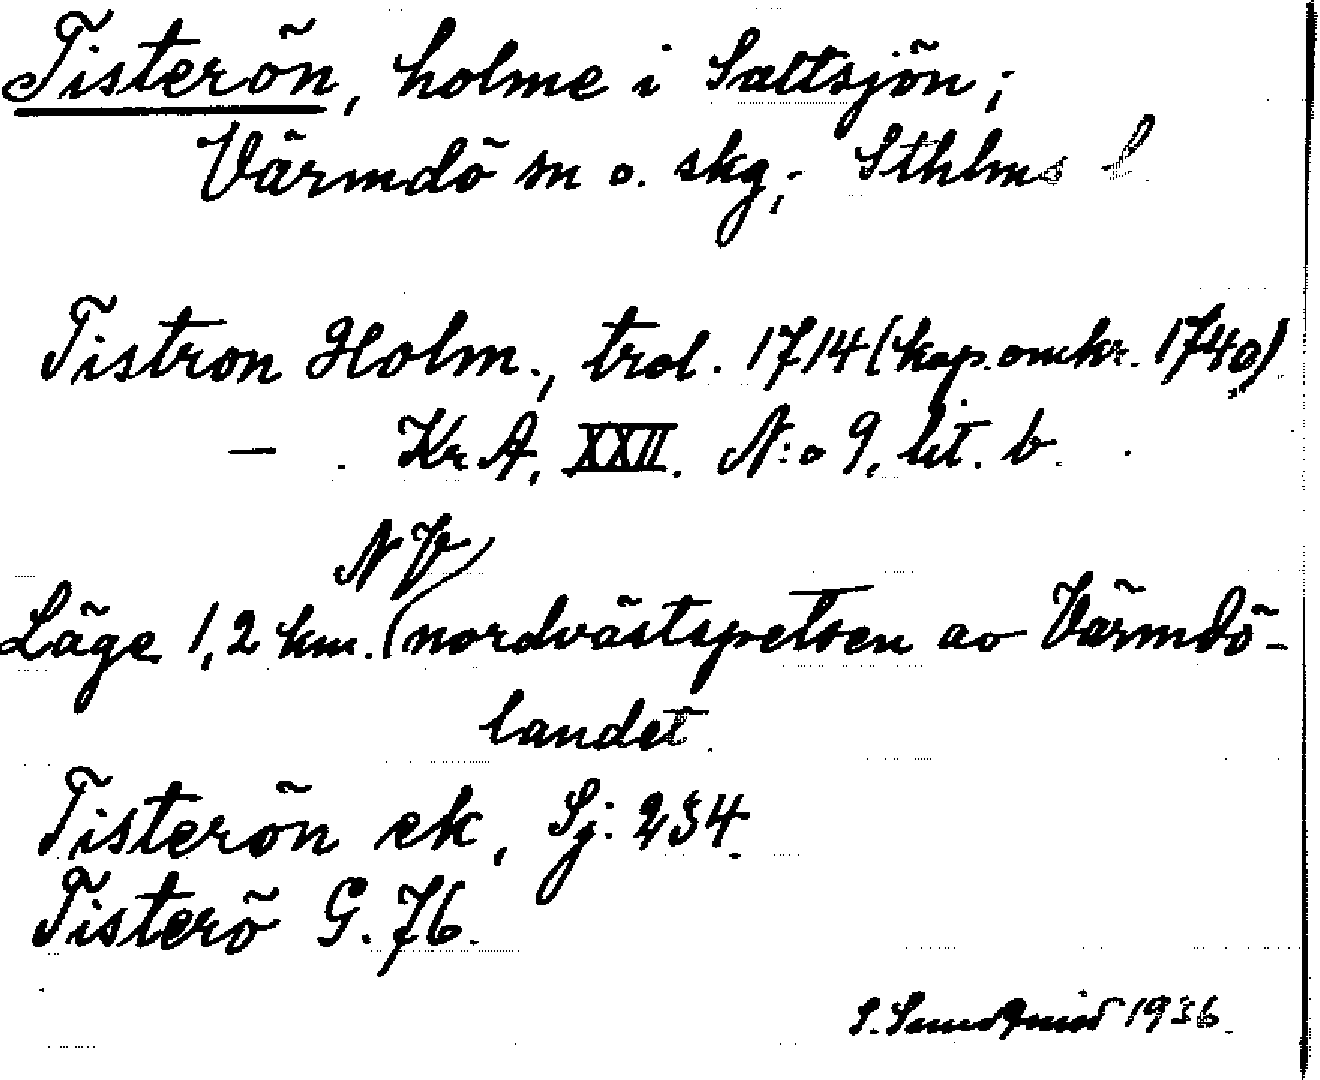 Tisterön, holme i Saltsjön;
Värmdö sn o. skg; Sthlms l
Tistron Holm., trol. 1714 (kop. omkr. 1740)
— Kr A, XXII. N:o 9, lit. b.
NV
Läge 1,2 km. (nordvästspetsen av Värmdö-
landet.
Tisterön ek, Sj: 234.
Tisterö G. 76.
S. 1936.